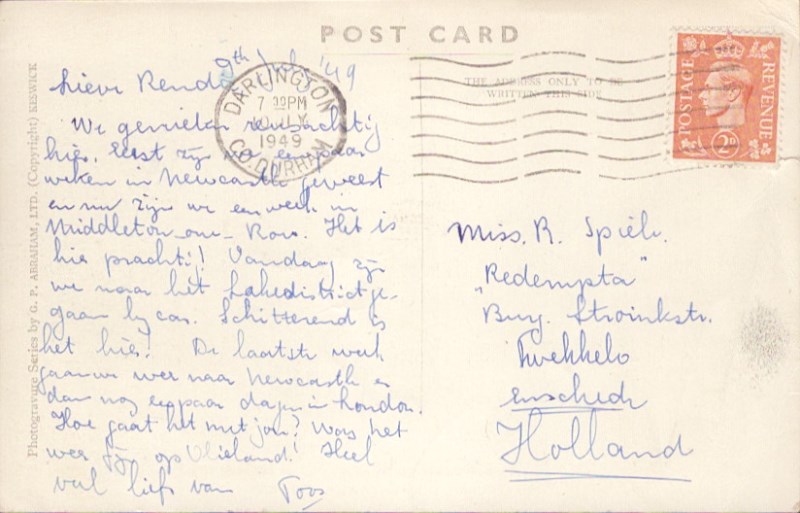 POST CARD
THE ADDRESS ONLY TO BE
WRITTEN THIS SIDE
POSTAGE
REVENUE
2D
DARLINGTON
7 30PM
10 JLY
1949
CO. DURHAM
Photogravure Series by G. P. ABRAHAM, LTD. (Copyright) KESWICK
9th July '49
Lieve Renda
We genieten reusachtig
hier. Eerst zijn we een paar
weken in Newcastle geweest
en nu zijn we een week in
Middleton-one-Row. Het is
hier prachtig! Vandaag zijn
we naar het Lakedistrict ge-
gaan by car. Schitterend is
het hier! De laatste week
gaan we weer naar Newcastle en
dan nog een paar dagen in London.
Hoe gaat het met jou? Was het
weer fijn op Vlieland! Heel
veel liefs van Toos
Miss. R. Spiele.
„Redempta"
Burg. Stroinkstr.
Twekkelo
Enschede
Holland